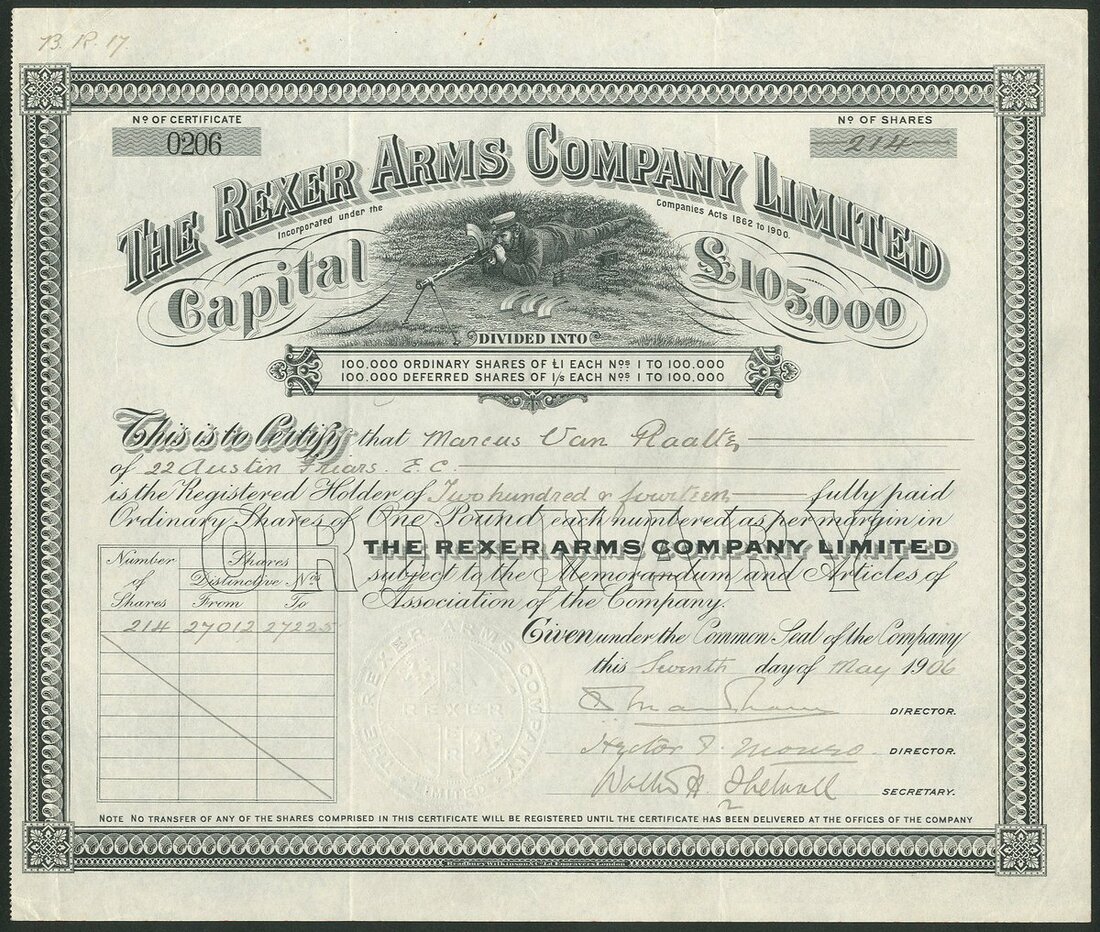 B. R. 17
Nº OF CERTIFICATE
0206
Nº OF SHARES
214
THE REXER ARMS COMPANY LIMITED
Incorporated under the Companies Acts 1862 to 1900.
Capital £105,000
DIVIDED INTO
100.000 ORDINARY SHARES OF £1 EACH Nºs 1 TO 100.000
100.000 DEFERRED SHARES OF 1/s EACH Nºs 1 TO 100.000
This is to Certify that Marcus Van Raalte
of 22 Austin Friars. E.C.
is the Registered Holder of Two hundred & fourteen fully paid
Ordinary Shares of One Pound each numbered as per margin in
ORDINARY
THE REXER ARMS COMPANY LIMITED
subject to the Memorandum and Articles of
Association of the Company.
Number of Shares
Shares
Distinctive Nos
From To
214 27012 27225
Given under the Common Seal of the Company
this Seventh day of May 1906
DIRECTOR.
Hector DIRECTOR.
Walter H. SECRETARY.
THE REXER ARMS COMPANY LIMITED
REXER
NOTE NO TRANSFER OF ANY OF THE SHARES COMPRISED IN THIS CERTIFICATE WILL BE REGISTERED UNTIL THE CERTIFICATE HAS BEEN DELIVERED AT THE OFFICES OF THE COMPANY